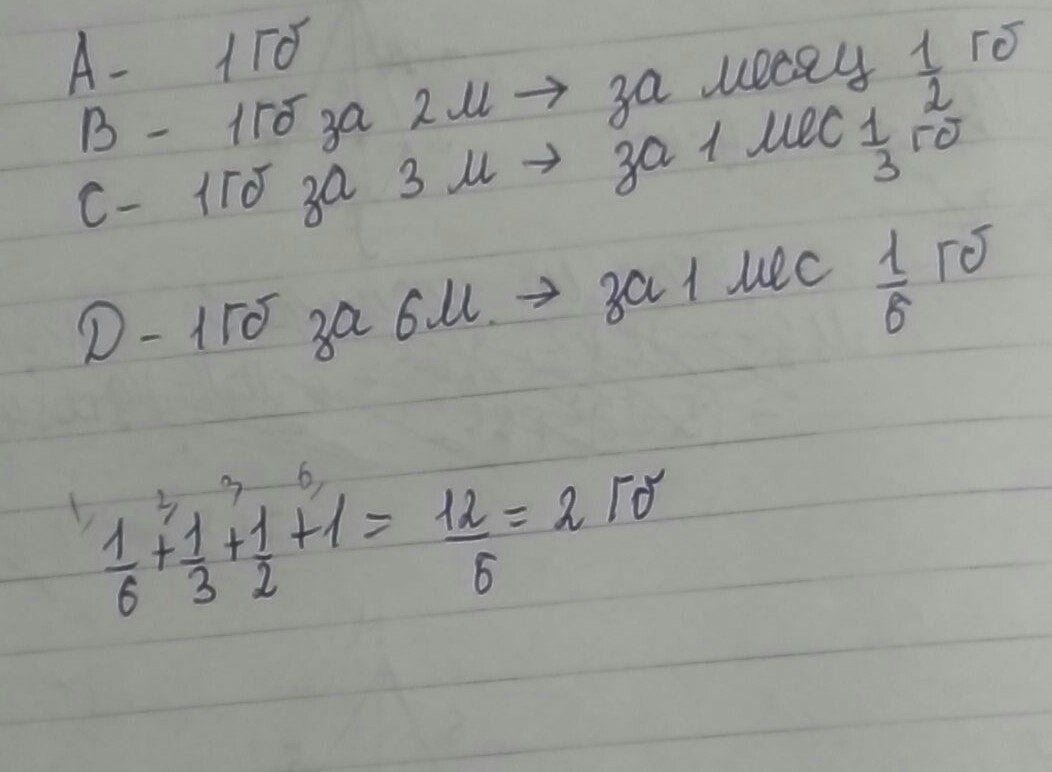 A - 1 Гб
B - 1Гб за 2 м → за месяц 1/2 гб
C - 1Гб за 3 м → за 1 мес 1/3 гб
D - 1Гб за 6м. → за 1 мес 1/6 гб
1/6 + 1/3 + 1/2 + 1 = 12/6 = 2 Гб